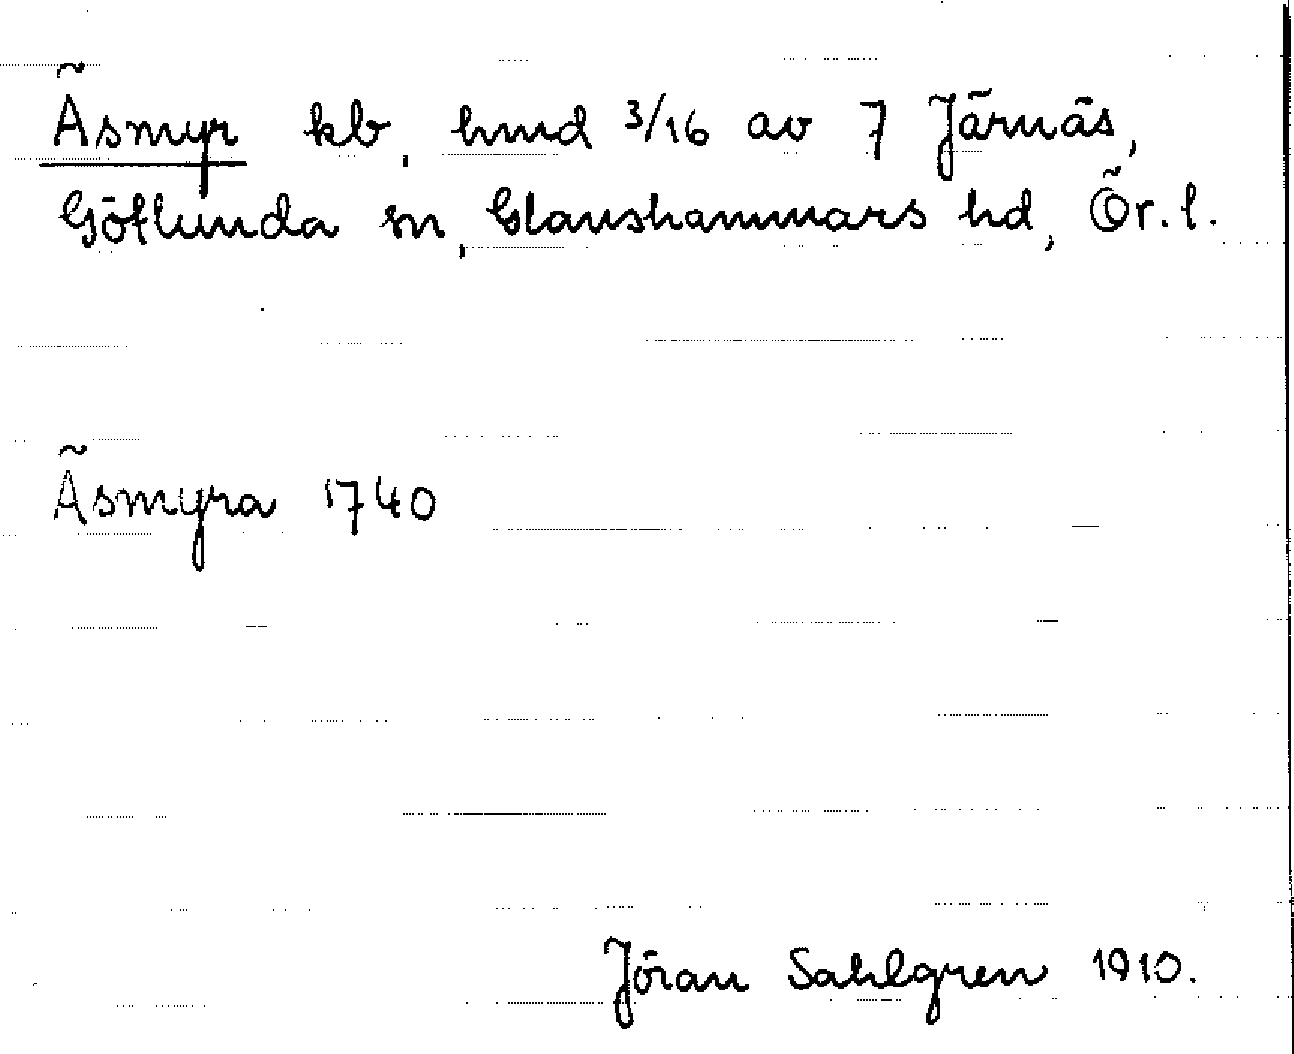 Äsmyr kb, hmd 3/16 av 7 Järnäs,
Götlunda sn, Glanshammars hd, Ör. l.
Äsmyra 1740
Jöran Sahlgren 1910.